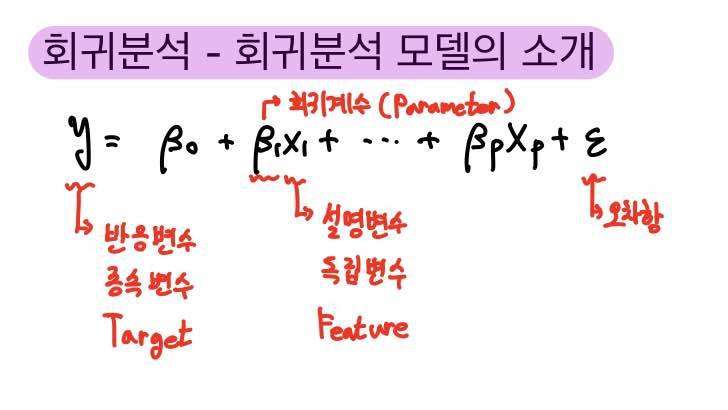 회귀분석 - 회귀분석 모델의 소개
회귀계수 (Parameter)
y = β₀ + β₁x₁ + ⋯ + βₚXₚ + ε
반응변수
종속변수
Target
설명변수
독립변수
Feature
오차항